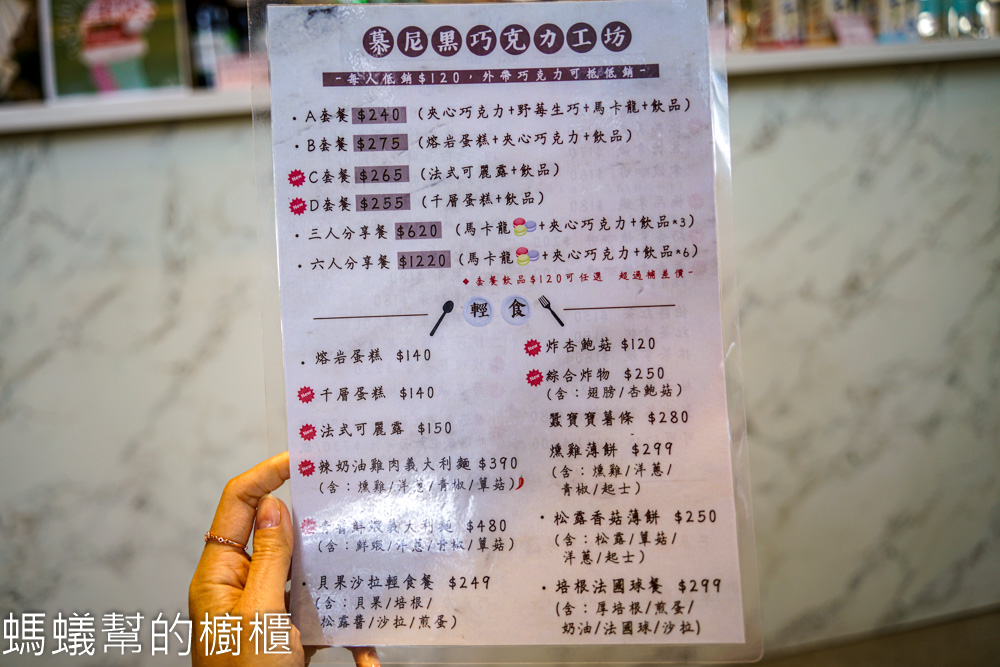 慕尼黑巧克力工坊
-每人低銷$120，外帶巧克力可抵低銷-
・A套餐 $240 (夾心巧克力+野莓生巧+馬卡龍+飲品)
・B套餐 $275 (熔岩蛋糕+夾心巧克力+飲品)
New C套餐 $265 (法式可麗露+飲品)
New D套餐 $255 (千層蛋糕+飲品)
・三人分享餐 $620 (馬卡龍+夾心巧克力+飲品*3)
・六人分享餐 $1220 (馬卡龍+夾心巧克力+飲品*6)
◆套餐飲品$120可任選 超過補差價-
輕食
・熔岩蛋糕 $140
New 千層蛋糕 $140
New 法式可麗露 $150
New 辣奶油雞肉義大利麵 $390
(含：燻雞/洋蔥/青椒/蕈菇)
鮮蝦義大利麵 $480
(含：鮮蝦/洋蔥/青椒/蕈菇)
・貝果沙拉輕食餐 $249
(含：貝果/培根/
松露醬/沙拉/煎蛋)
New 炸杏鮑菇 $120
New 綜合炸物 $250
(含：翅膀/杏鮑菇)
蠶寶寶薯條 $280
燻雞薄餅 $299
(含：燻雞/洋蔥/
青椒/起士)
・松露香菇薄餅 $250
(含：松露/蕈菇/
洋蔥/起士)
・培根法國球餐 $299
(含：厚培根/煎蛋/
奶油/法國球/沙拉)
螞蟻幫的櫥櫃